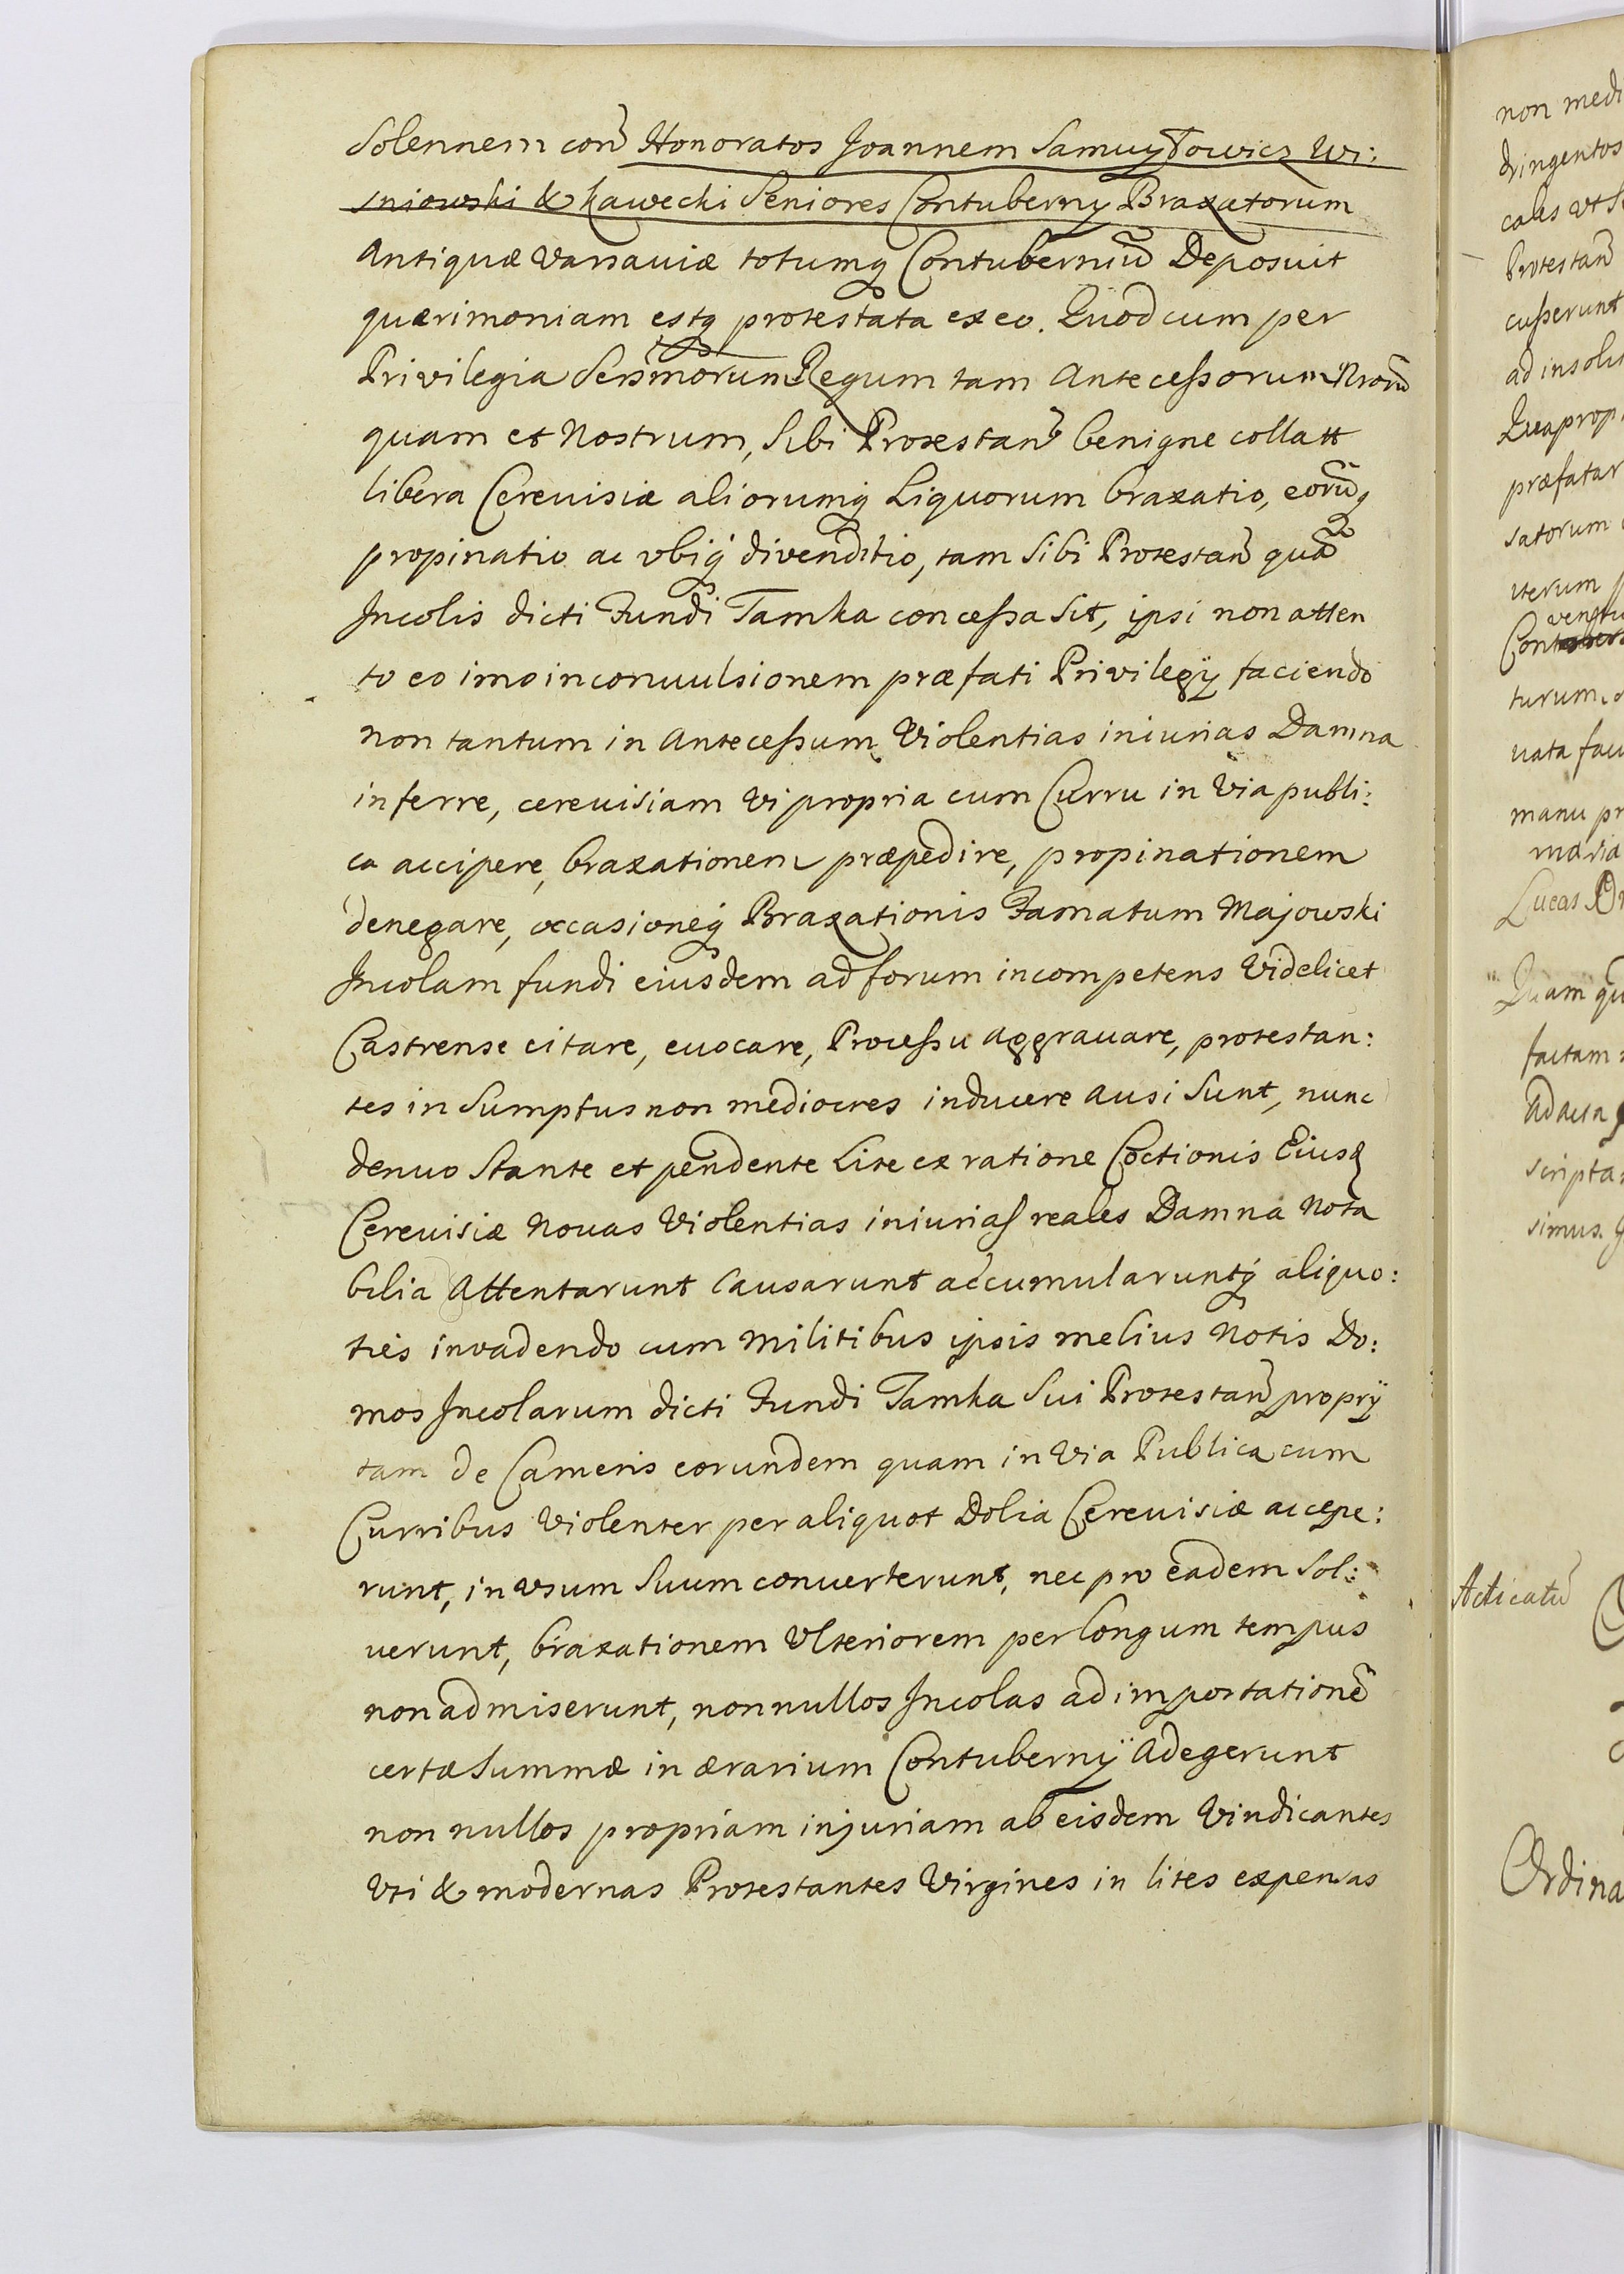 Solennem con̄ Honoratos Joannem Samuyłowicz Wi:
sniowski & Kawecki Seniores Contubernÿ Braxatorum
Antiquæ Varsaviæ totumq Contuberniū Deposuit
quærimoniam estq protestata ex eo. Quod cum per
Privilegia Serᵐmorum Regum tam Antecessorum Nrorū
quam et Nostrum, Sibi Protestan̄ benigne collatt
libera Cerevisiæ aliorumq Liquorum braxatio, eorūq
propinatio ac vbiq divenditio, tam Sibi Protestan̄ quā
Incolis dicti Fundi Tamka concessa Sit, ipsi non atten
to eo imo in convulsionem præfati Privilegÿ faciendo
non tantum in Antecessum Violentias iniurias Damna
inferre, cereuisiam Vi propria cum Curru in Via publi:
ca accipere, braxationem præpedire, propinationem
denegare, occasioneq Braxationis Famatum Majowski
Incolam fundi eiusdem ad forum incompetens Videlicet
Castrense citare, euocare, Processu Aggrauare, protestan:
tes in Sumptus non mediocres inducere Ausi Sunt, nunc
denuo Stante et pendente Lite ex ratione Coctionis Eiusd
Cereuisiæ Nouas Violentias iniurias reales Damna Nota
bilia Attentarunt Causarunt accumularuntq aliquo:
ties invadendo cum Militibus ipsis melius Notis Do:
mos Incolarum dicti Fundi Tamka Sui Protestan̄ proprÿ
tam de Cameris eorundem quam in Via Publica cum
Curribus Violenter per aliquot Dolia Cereuisiæ accepe:
runt, in vsum Suum conuerterunt, nec pro eadem Sol:
uerunt, braxationem Vlteriorem per longum tempus
non admiserunt, nonnullos Incolas ad importationē
certæ Summæ in ærarium Contubernÿ Adegerunt
non nullos propriam injuriam ab eisdem Vindicantes
Vti & modernas Protestantes Virgines in lites expensas
non medi
dringentos
Protestan̄
cusserunt
ad insoli
Quaprop
præfatar
satorum
iterum
turum
uata fac
manu pr
Lucas
Quam qu
factam
Ad acta
scripta
simus.
Acticatū
Ordina